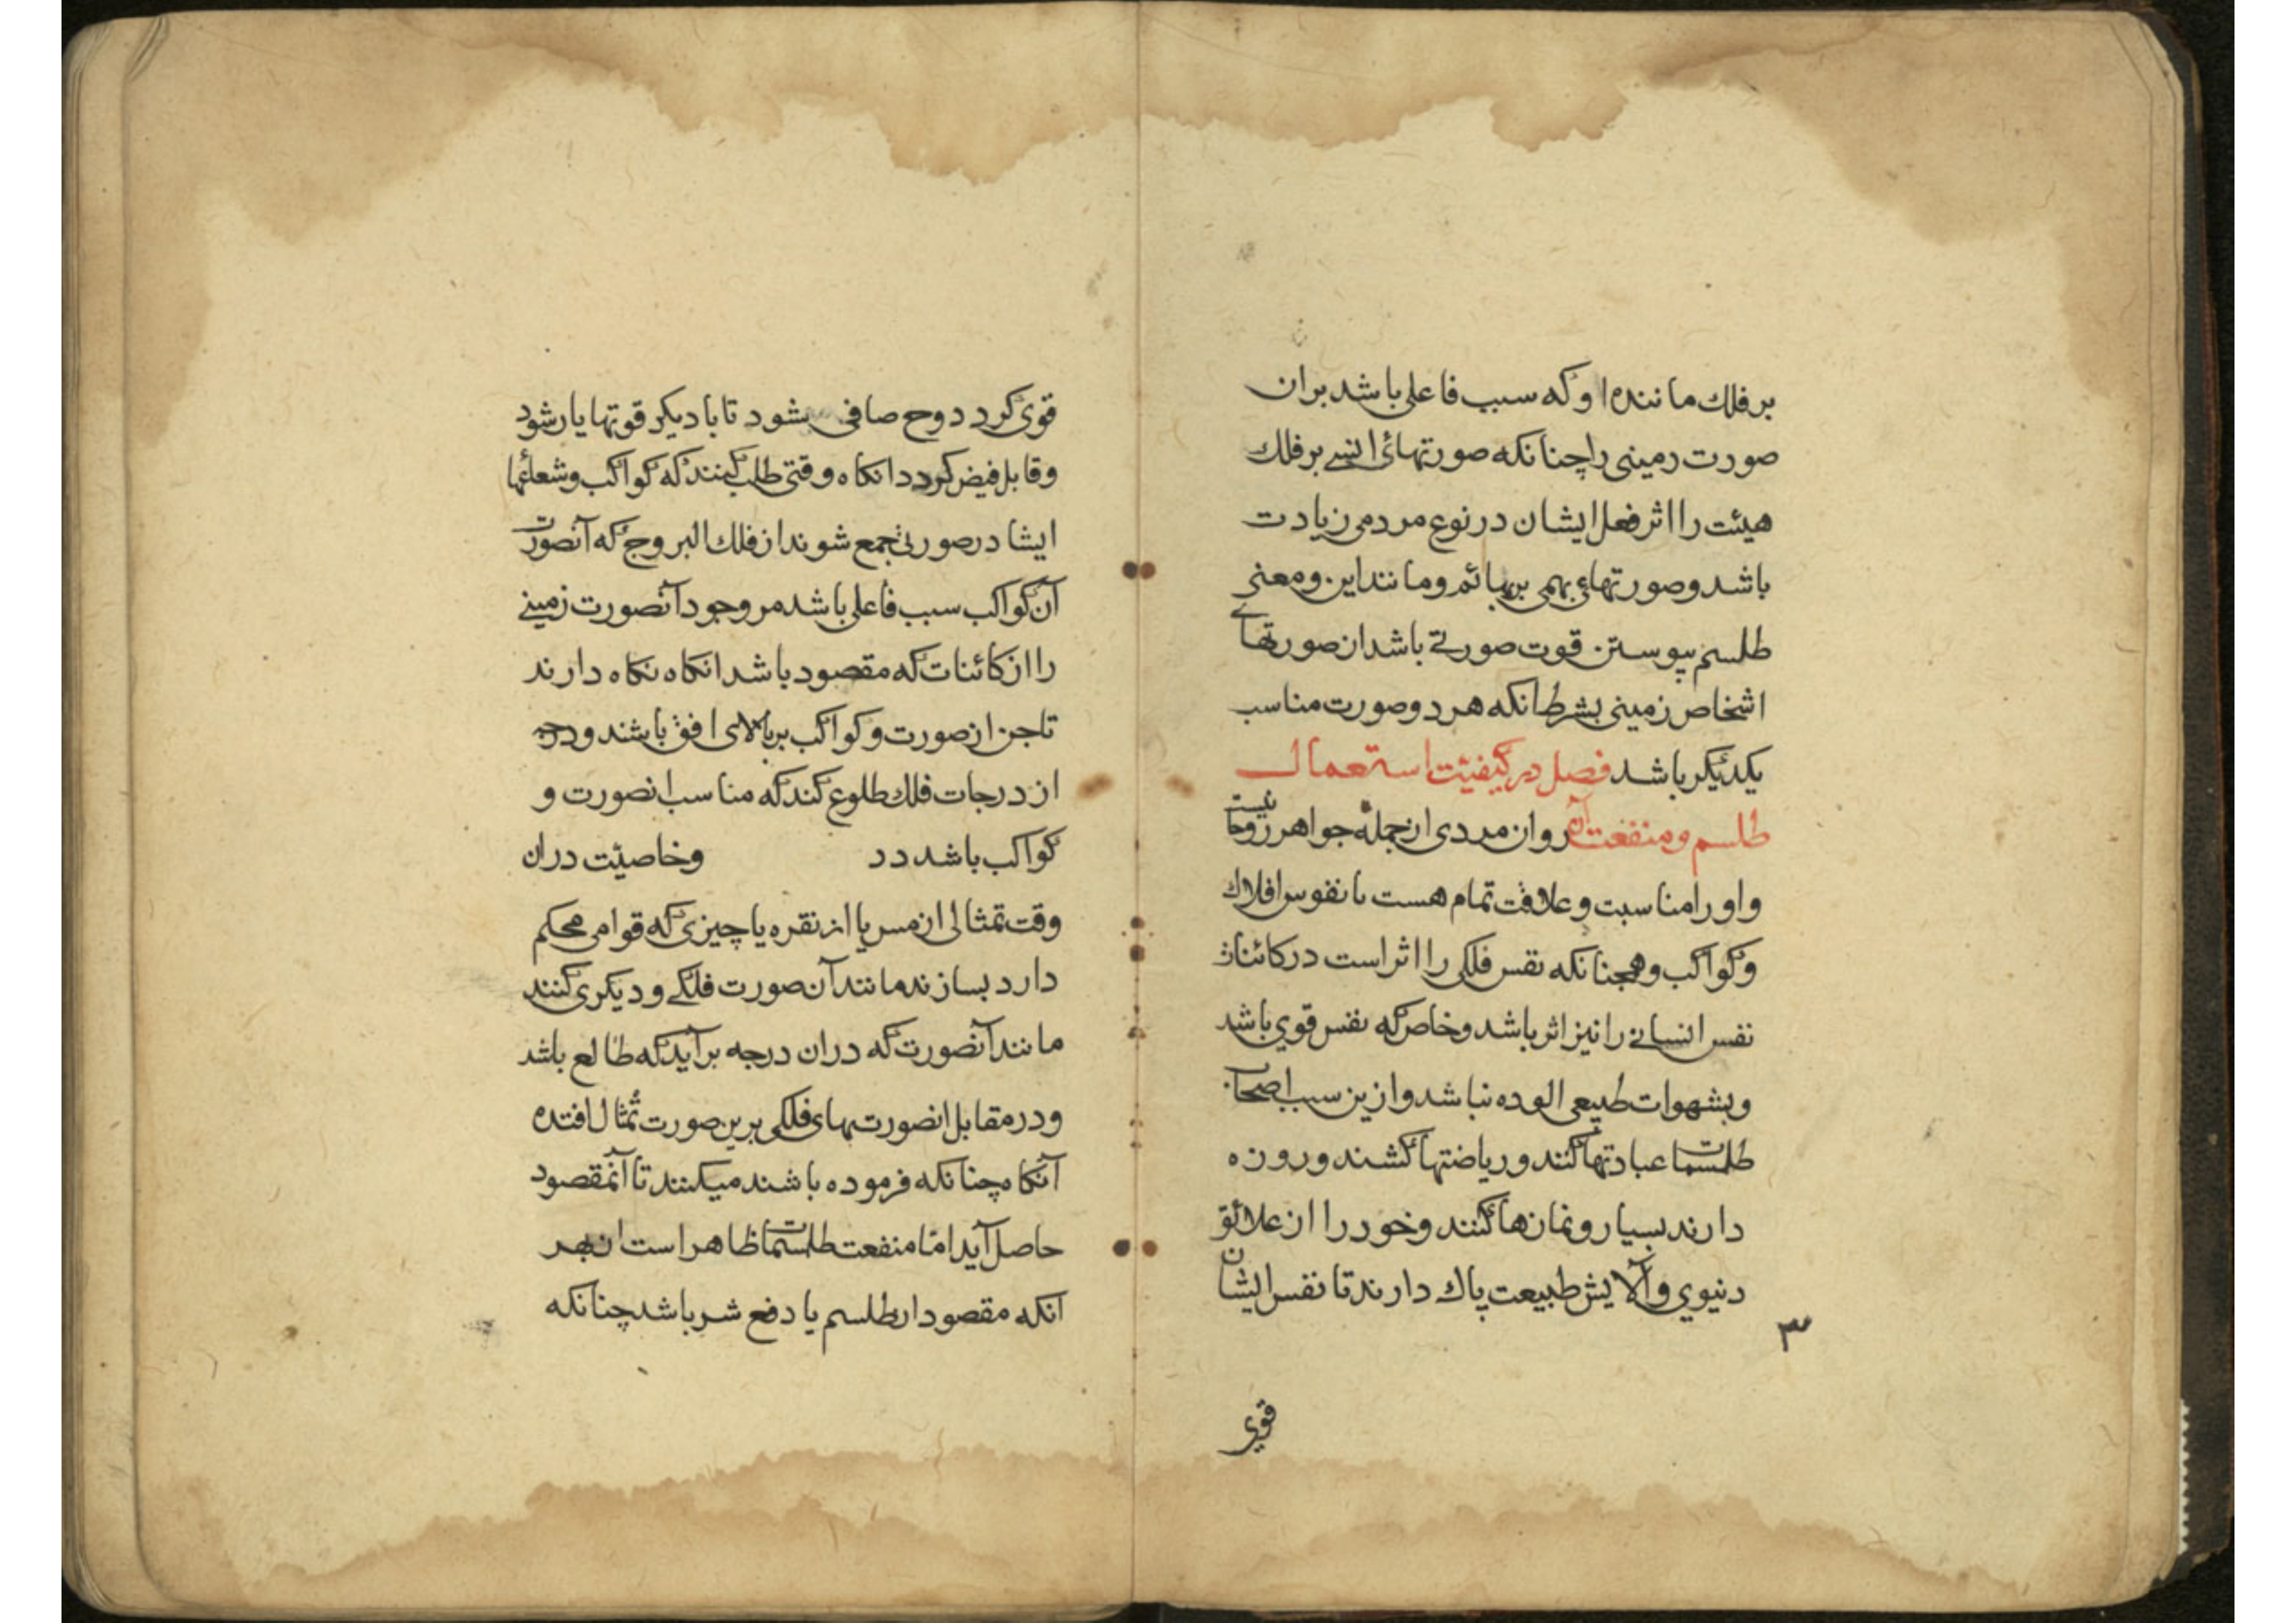 بر فلك ماننده او كه سبب فاعلی باشد بران
صورت رمینی را چنانکه صورتهائ انسے بر فلك
هیئت را اثر فعل ایشان در نوع مردمی زیادت
باشد و صورتهاء بهمی بربهائم و مانند این و معنی
طلسم پیوستن قوت صورتے باشد ان صورتهاے
اشخاص زمینی بشرط انکه هر دو صورت مناسب
یکدیکر باشد فصل در کیفیت استعمال
طلسم و منفعت آن روان مردی از جمله جواهر روحانیست
و او را مناسبت و علاقت تمام هست با نفوس افلاك
و کواکب و همچنانکه نفس فلکی را اثر است در کائنات
نفس انسانے را نیز اثر باشد و خاص که نفس قوي باشد
و بشهوات طبیعی الوده نباشد و ازین سبب اصحاب
طلسمات عبادتها کنند و ریاضتها کشند و روزه
دارند بسیار و نمازها کنند و خود را از علائق
دنیوي و آلایش طبیعت پاك دارند تا نفس ایشان
۳
قوي
قوی کردد و روح صافی بشود تا با دیکر قوتها یار شود
و قابل فیض کردد انکاه وقتی طلب کنند که کواکب و شعاعها
ایشا در صورتی جمع شوند از فلك البروج که آنصورت
آن کواکب سبب فاعلی باشد مر وجود آنصورت زمینے
را از کائنات که مقصود باشد انکاه نکاه دارند
تا جن ان صورت و کواکب بر بالای افق باشند و درجه
از درجات فلك طلوع کند که مناسب انصورت و
کواکب باشد در وخاصیت دران
وقت تمثالی از مس یا از نقره یا چیزی که قوامی محکم
دارد بسازند مانند آن صورت فلکے و دیکری کنند
مانند آنصورت که دران درجه برآید که طالع باشد
و در مقابل انصورتهای فلکی برین صورت تمثال افتده
آنکاه چنانکه فرموده باشند میکنند تا آنمقصود
حاصل آید امّا منفعت طلسمات ظاهر است از بهر
انکه مقصود از طلسم یا دفع شر باشد چنانکه